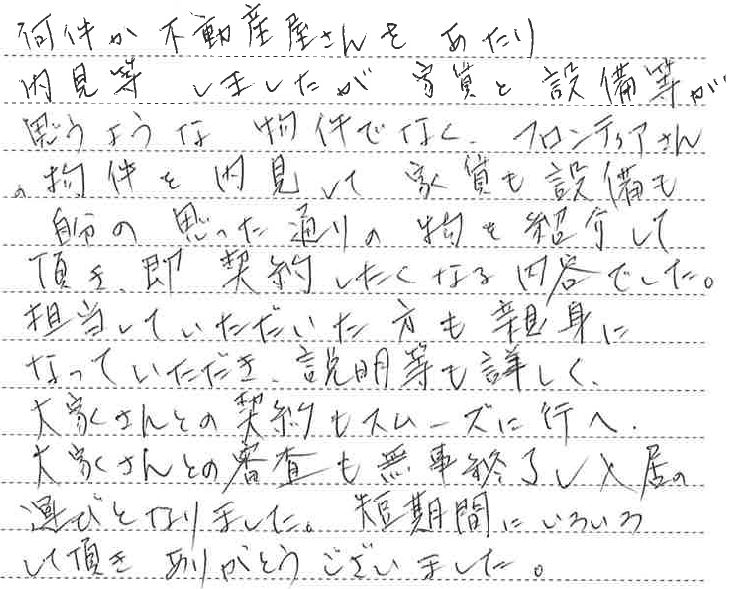 何件か不動産屋さんをあたり
内見等しましたが家賃と設備等が
思うような物件でなく、フロンティアさん
の物件を内見して家賃も設備も
自分の思った通りの物を紹介して
頂き、即契約したくなる内容でした。
担当していただいた方も親身に
なっていただき、説明等も詳しく、
大家さんとの契約もスムーズに行へ、
大家さんとの審査も無事終了し入居の
運びとなりました。短期間にいろいろ
して頂きありがとうございました。